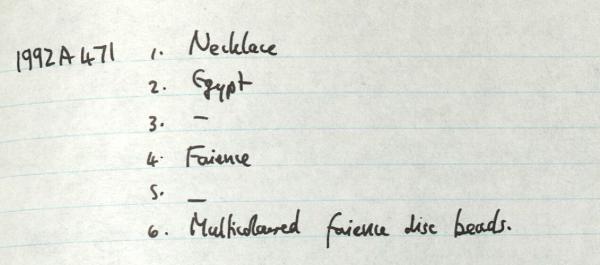 1992A471 1. Necklace
2. Egypt
3. –
4. Faience
5. –
6. Multicoloured faience disc beads.